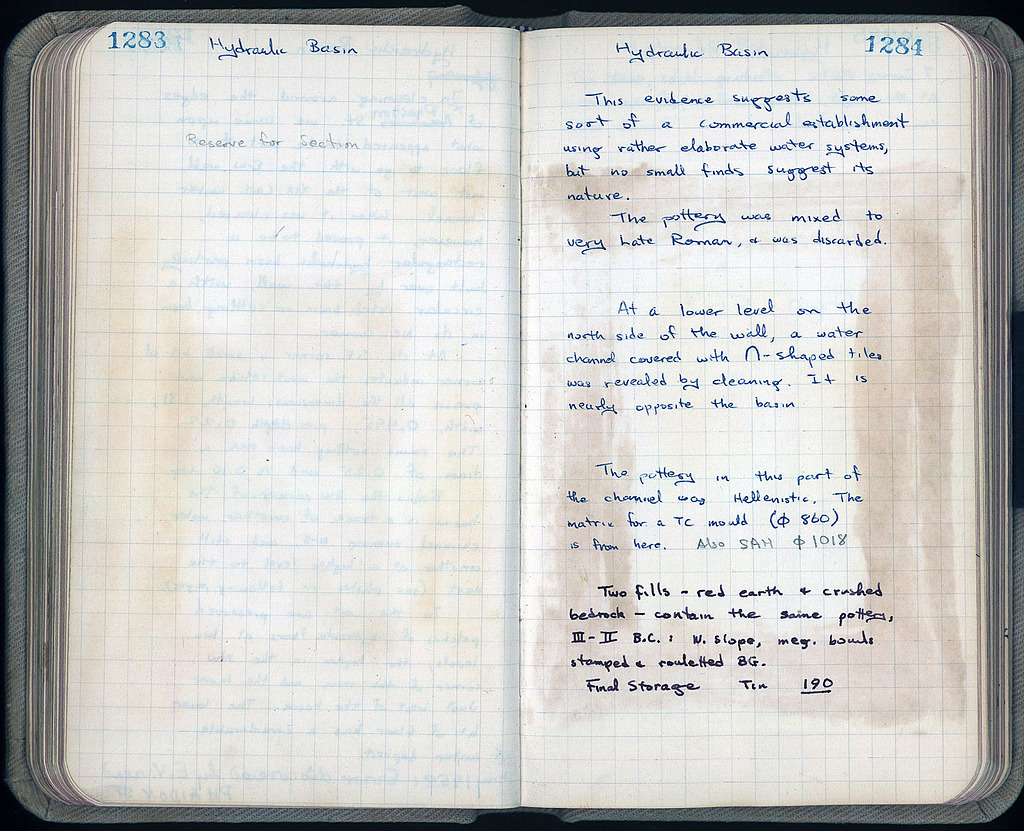 1283 Hydraulic Basin
Reserve for Section
Hydraulic Basin 1284
This evidence suggests some
sort of a commercial establishment
using rather elaborate water systems,
but no small finds suggest its
nature.
The pottery was mixed to
very Late Roman, & was discarded.
At a lower level on the
north side of the wall, a water
channel covered with ∩-shaped tiles
was revealed by cleaning. It is
nearly opposite the basin
The pottery in this part of
the channel was Hellenistic. The
matrix for a TC mould (Φ 860)
is from here. Also SAH Φ 1018
Two fills - red earth & crushed
bedrock - contain the same pottery,
III-II B.C.: W. slope, meg. bowls
stamped & rouletted BG.
Final Storage Tin 190